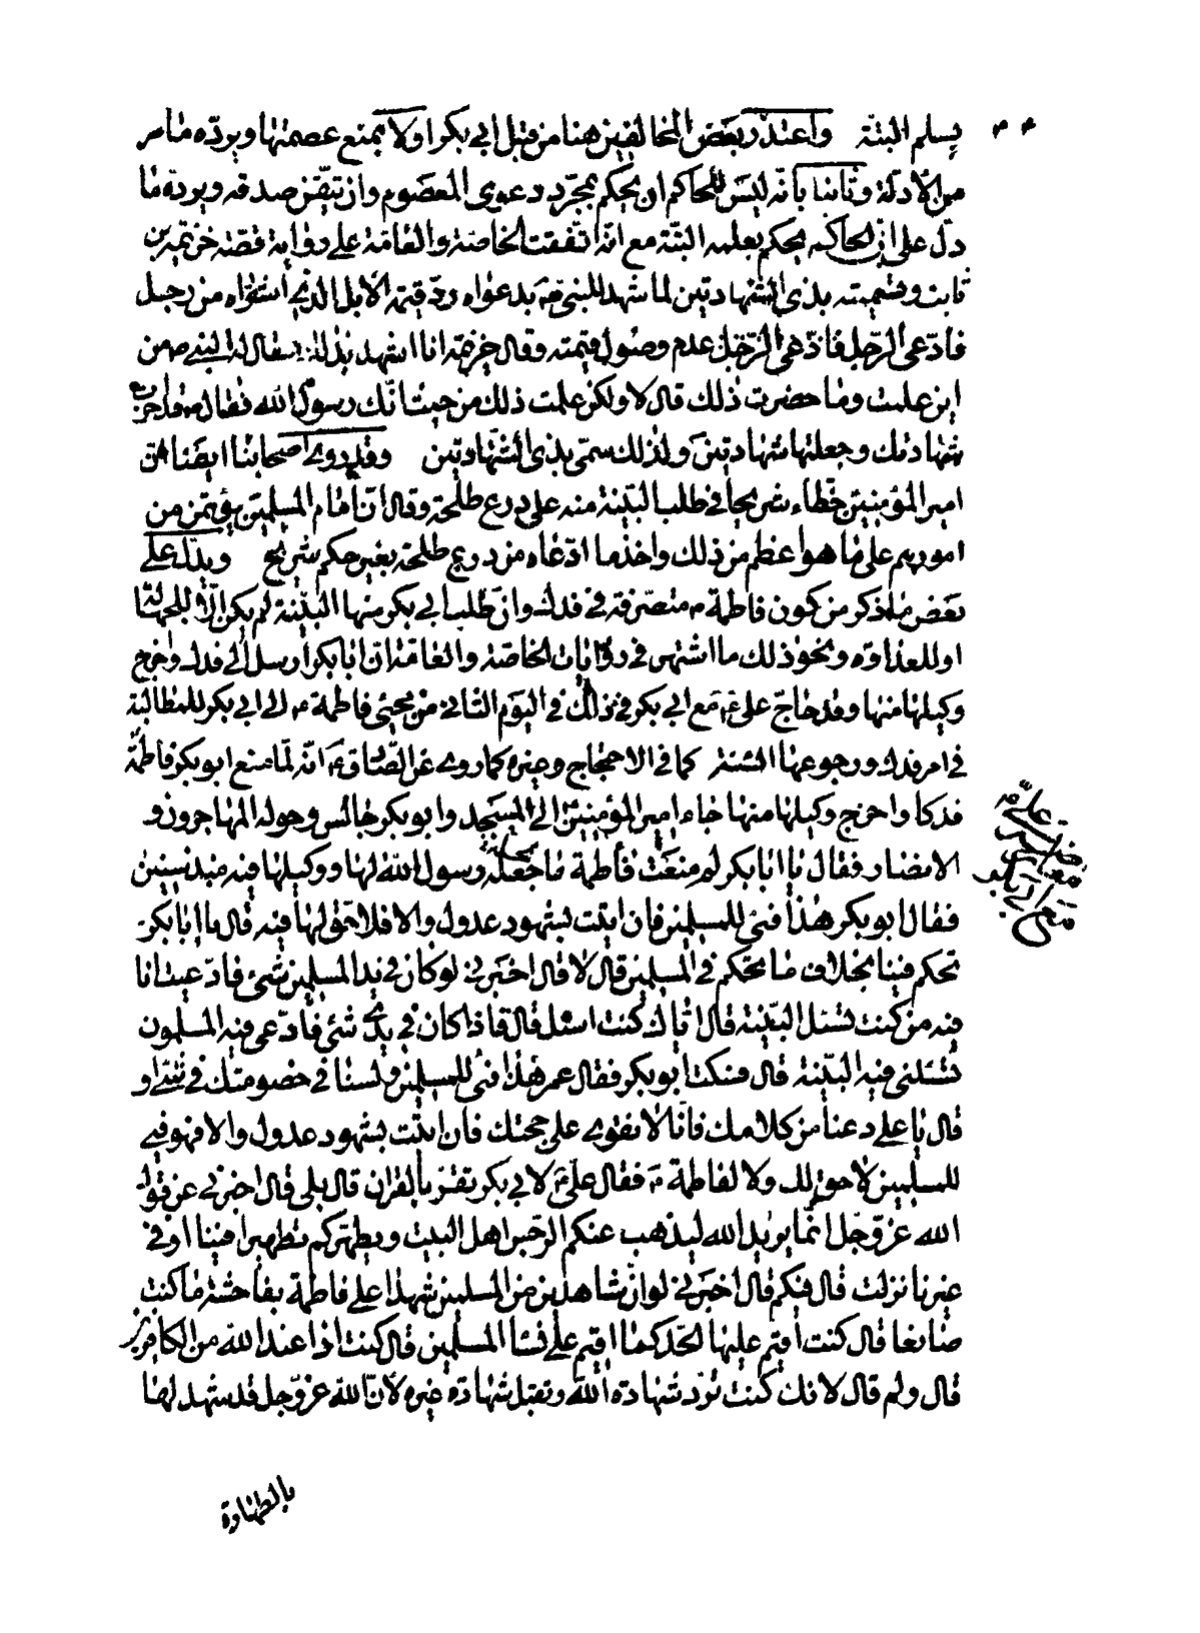 يسلم البتة واعتذر بعض المخالفين هنا من قبل ابي بكر اولا بمنع عصمتها ويردّه ما مر
من الأدلة وثانيا بانه ليس للحاكم ان يحكم بمجرد دعوى المعصوم وان تيقن صدقه ويردّه ما
دلّ على ان الحاكم يحكم بعلمه البتة مع انه اتفقت الخاصة والعامة على رواية قصة خزيمة بن
ثابت وتسميته بذي الشهادتين لما شهد للنبي ص بدعواه ردّ قيمة الابل الذي اشتراه من رجل
فادّعى الرجل فادّعى الرّجل عدم وصول قيمته وقال خزيمة انا اشهد بذلك فقال له النبي ص من
اين علمت وما حضرت ذلك قال لا ولكن علمت ذلك من حيث انك رسول الله فقال ص قد اجزت
شهادتك وجعلتها شهادتين ولذلك سمّى بذي الشهادتين وقد روى اصحابنا ايضا انّ
امير المؤمنين خطّاء شريحا في طلب البيّنة منه على درع طلحة وقال ان امام المسلمين يؤتمن من
امورهم على ما هو اعظم من ذلك واخذ ما ادّعاه من درع طلحة بغير حكم شريح ويدلّ على
بعض ما ذكر من كون فاطمة ع متصرفة في فدك وانّ طلب ابي بكر منها البيّنة لم يكن الّا للجهالة
او للعداوة ونحو ذلك ما اشتهر في روايات الخاصة والعامة ان ابا بكر ارسل الى فدك واخرج
وكيلها منها وقد حاجّ علي ع مع ابي بكر في ذلك في اليوم الثاني من مجيئ فاطمة ع الى ابي بكر للمطالبة
في امر فدك ورجوعها كما في الاحتجاج وغيره كما روى عن الصّادق ع انّه لمّا منع ابو بكر فاطمة
فدكا واخرج وكيلها منها جاء امير المؤمنين الى المسجد وابو بكر جالس وحوله المهاجرون و
الانصار فقال يا ابا بكر لم منعت فاطمة ما جعله رسول الله لها ووكيلها فيه منذ سنين
فقال ابو بكر هذا فيئ للمسلمين فان اتت بشهود عدول والا فلا حق لها فيه قال يا ابا بكر
تحكم فينا بخلاف ما تحكم في المسلمين قال لا قال اخبرني لو كان في يد المسلمين شيء فادّعيت انا
فيه من كنت تسئل البيّنة قال ايّاك كنت اسئل قال فاذا كان في يدي شئ فادّعى فيه المسلمون
تسئلني فيه البيّنة قال فسكت ابو بكر فقال عمر هذا فيئ للمسلمين ولسنا في خصومتك في شئ و
قال يا علي دعنا من كلامك فانّا لا نقوى على حججك فان اتيت بشهود عدول والا فهو فيئ
للمسلمين لا حق لك ولا لفاطمة ع فقال علي ع لابي بكر تقرّ بالقران قال بلى قال اخبرني عن قول
الله عزوجل انّما يريد الله ليذهب عنكم الرّجس اهل البيت ويطهركم تطهيرا افينا او في
غيرنا نزلت قال فيكم قال اخبرني لو ان شاهدين من المسلمين شهدا على فاطمة بفاحشة ما كنت
صانعا قال كنت اقيم عليها الحدّ كما اقيم على نساء المسلمين قال كنت اذا عند الله من الكافرين
قال ولم قال لانك كنت تردّ شهادة الله وتقبل شهادة غيره لأنّ الله عزّوجل قد شهد لها
بالطهارة